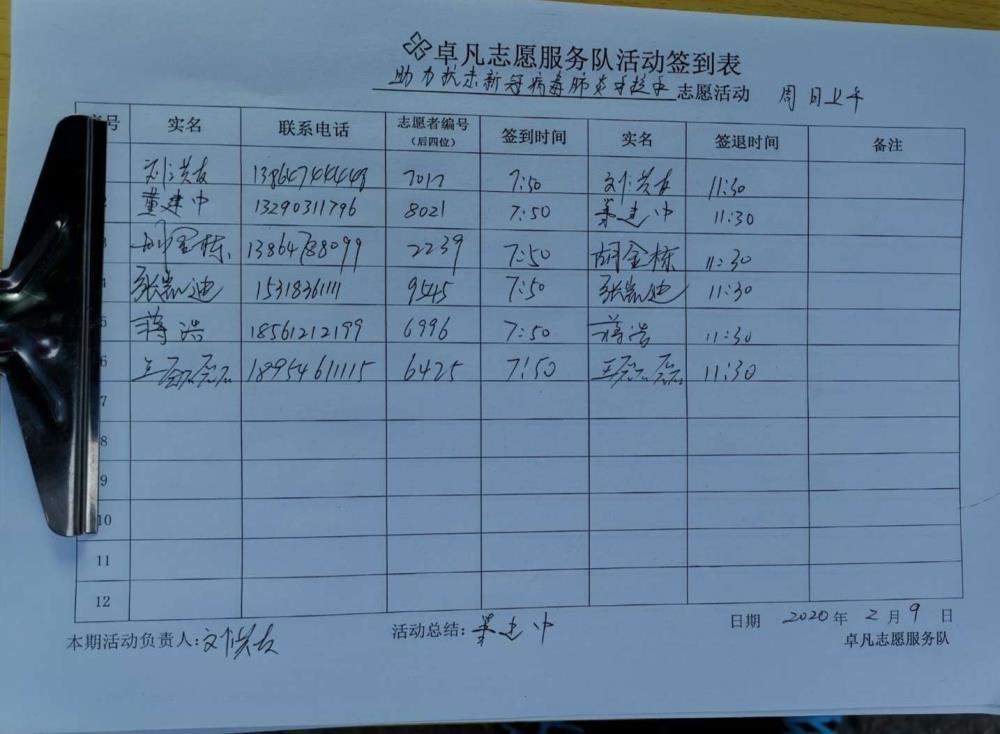 卓凡志愿服务队活动签到表
助力抗击新冠病毒肺炎 志愿活动 周日上午
号 实名 联系电话 志愿者编号（后四位） 签到时间 实名 签退时间 备注
刘洪友 13864744448 7017 7:50 刘洪友 11:30
2 董建中 13290311796 8021 7:50 董建中 11:30
3 胡金栋 13864788099 2239 7:50 胡金栋 11:30
4 张凯迪 15318361111 9545 7:50 张凯迪 11:30
5 蒋浩 18561212199 6996 7:50 蒋浩 11:30
6 王磊磊 18954611115 6425 7:50 王磊磊 11:30
7
8
9
10
11
12
本期活动负责人:刘洪友 活动总结:董建中 日期 2020年2月9日
卓凡志愿服务队